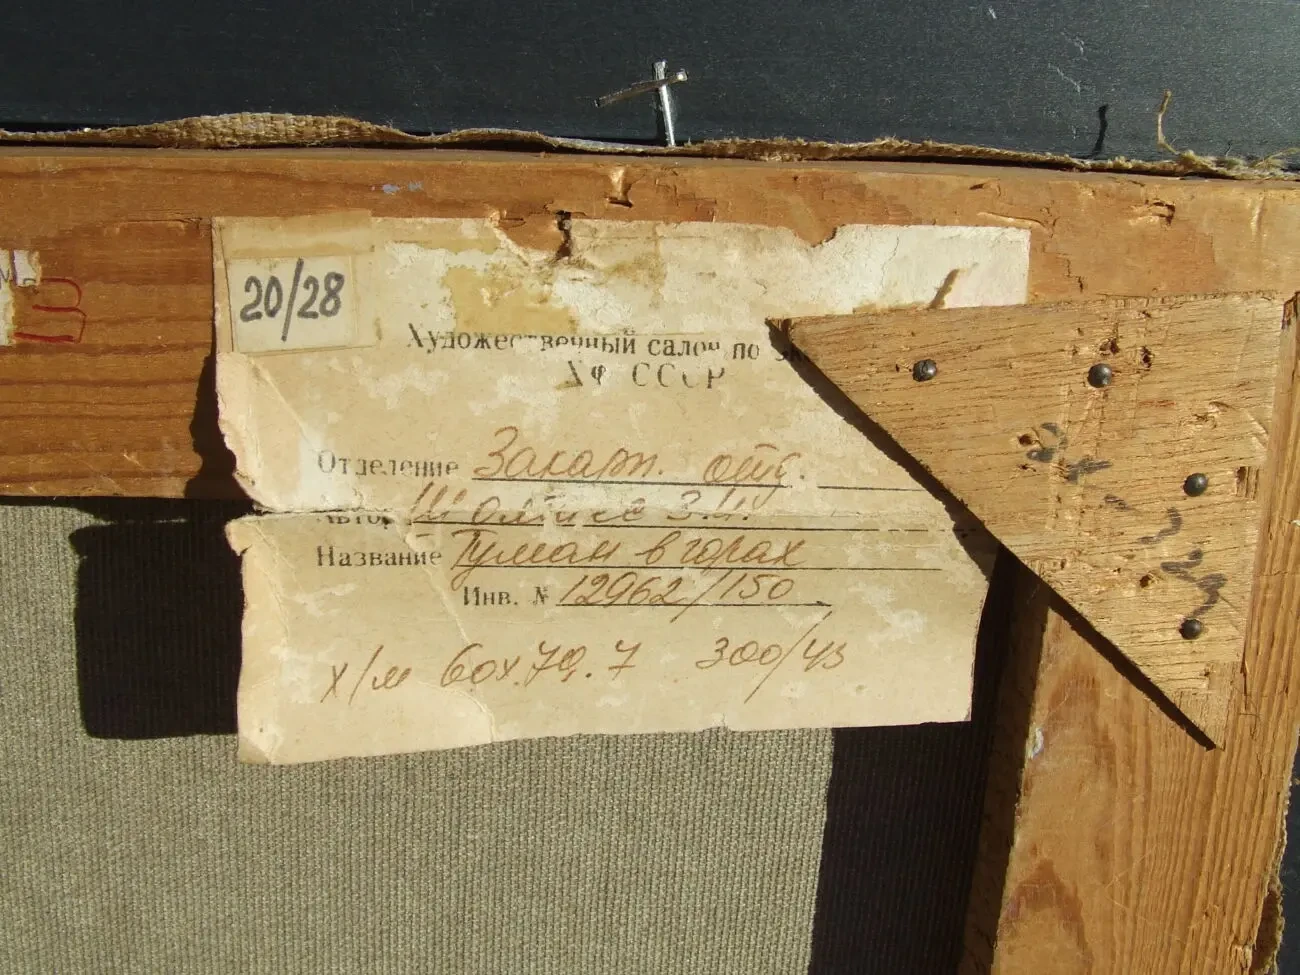 20/28
Художественный салон по
ХФ СССР
Отделение Закарп. отд.
Автор Шолтесс З.И.
Название Туман в горах
Инв. № 12962/150
х/м 60х79,7 300/43